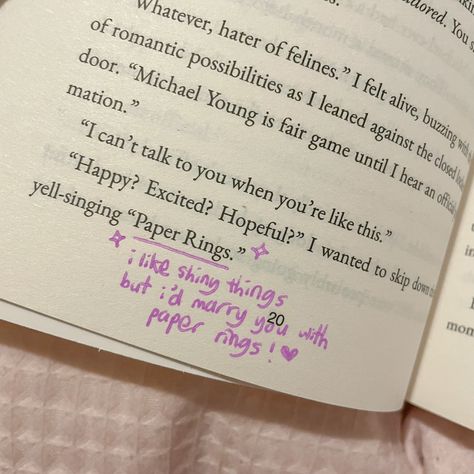 adored. You s
Whatever, hater of felines." I felt alive, buzzing with
of romantic possibilities as I leaned against the closed
door. "Michael Young is fair game until I hear an official
mation."
"I can't talk to you when you're like this."
"Happy? Excited? Hopeful?" I wanted to skip down
yell-singing "Paper Rings."
i like shiny things
but i'd marry you with
paper rings!
20
mom